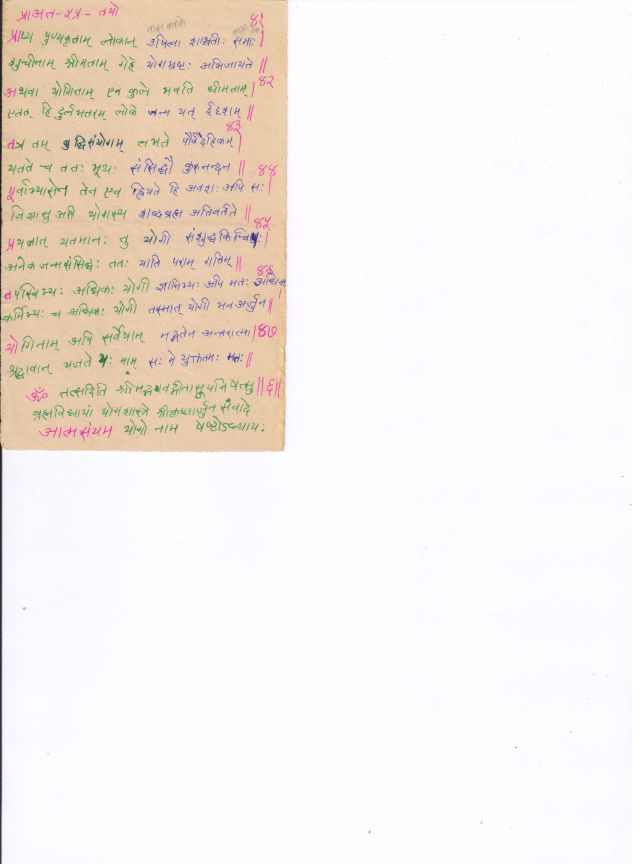 प्राअत-५प्र-तयो ४१
वास करके
प्राप्य पुण्यकृताम् लोकान् उषित्वा शाश्वतीः समाः|
शुचीनाम् श्रीमताम् गेहे योगभ्रष्टः अभिजायते ||
४२
अथवा योगिनाम् एव कुले भवति धीमताम्|
एतत् हि दुर्लभतरम् लोके जन्म यत् ईदृशम् ||
४३
तत्र तम् बुद्धिसंयोगम् लभते पौर्वदेहिकम्|
यतते च ततः भूयः संसिद्धौ कुरुनन्दन || ४४
पूर्वाभ्यासेन तेन एव ह्रियते हि अवशः अपि सः|
जिज्ञासु अपि योगस्य शब्दब्रह्म अतिवर्तते ||
४५
प्रयत्नात् यतमानः तु योगी संशुद्धकिल्बिषः|
अनेकजन्मसंसिद्धः ततः याति पराम् गतिम् ||
४६
तपस्विभ्यः अधिकः योगी ज्ञानिभ्यः अपि मतः अधिकः
कर्मिभ्यः च अधिकः योगी तस्मात् योगी भव अर्जुन ||
योगिनाम् अपि सर्वेषाम् मद्गतेन अन्तरात्मा| ४७
श्रद्धावान् भजते यः माम् सः मे युक्ततमः मतः ||
ॐ तत्सदिति श्रीमद्भगवद्गीतासूपनिषत्सु ||६||
ब्रह्मविद्यायां योगशास्त्रे श्रीकृष्णार्जुन संवादे
आत्मसंयम योगो नाम षष्ठोऽध्याय: